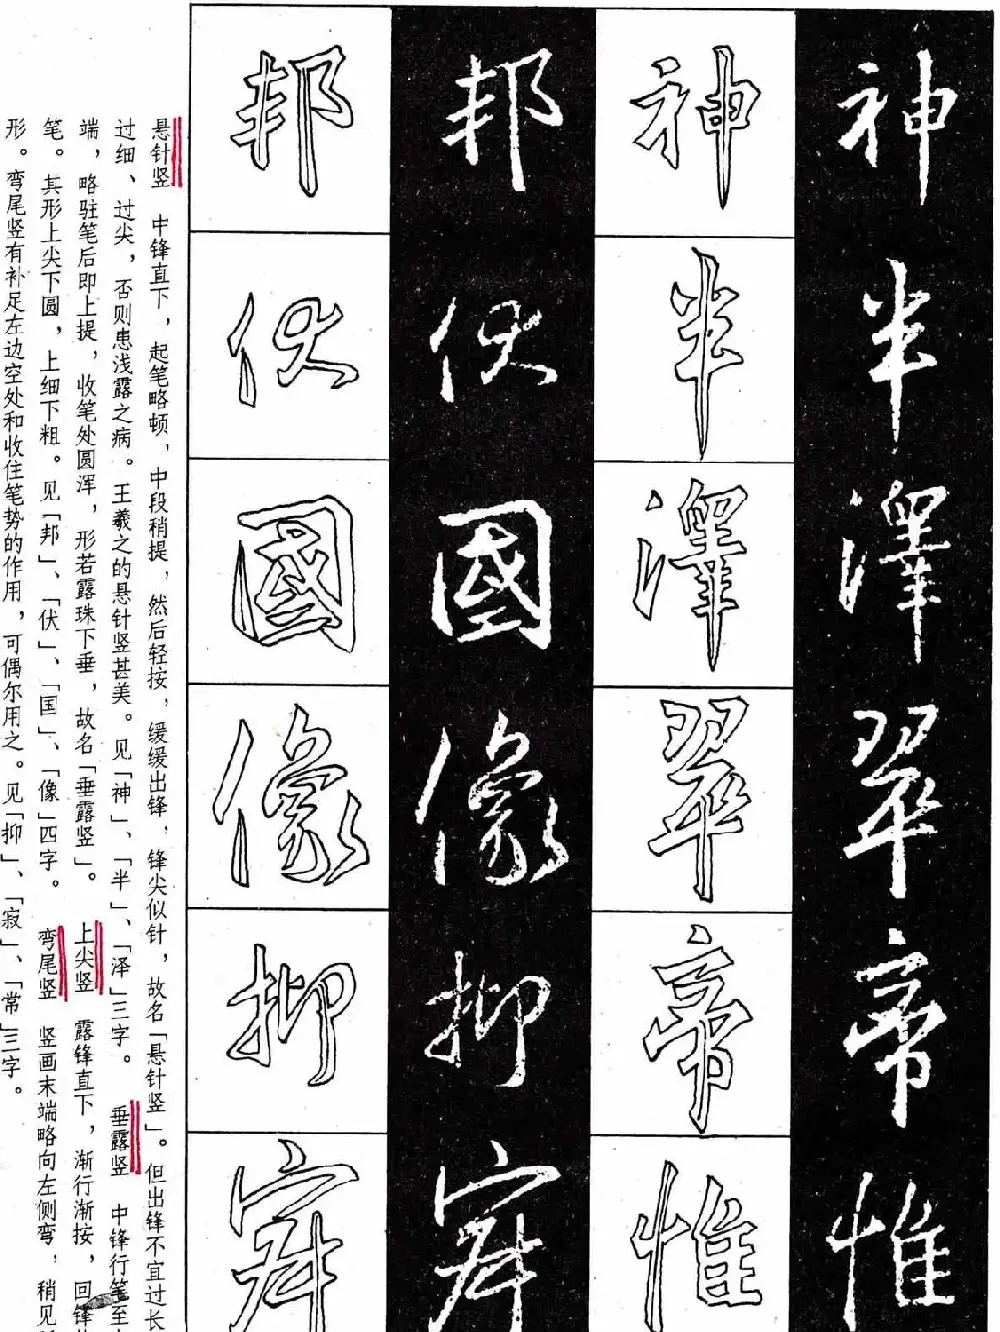 神半澤翠帝惟
神半澤翠帝惟
邦伏國像抑寂
邦伏國像抑寂
悬针竖 中锋直下，起笔略顿，中段稍提，然后轻按，缓缓出锋，锋尖似针，故名「悬针竖」。但出锋不宜过长
过细、过尖，否则患浅露之病。王羲之的悬针竖甚美。见「神」、「半」、「泽」三字。 垂露竖 中锋行笔至
端，略驻笔后即上提，收笔处圆浑，形若露珠下垂，故名「垂露竖」。 上尖竖 露锋直下，渐行渐按，回锋
笔。其形上尖下圆，上细下粗。见「邦」、「伏」、「国」、「像」四字。 弯尾竖 竖画末端略向左侧弯，稍见
形。弯尾竖有补足左边空处和收住笔势的作用，可偶尔用之。见「抑」、「寂」、「常」三字。